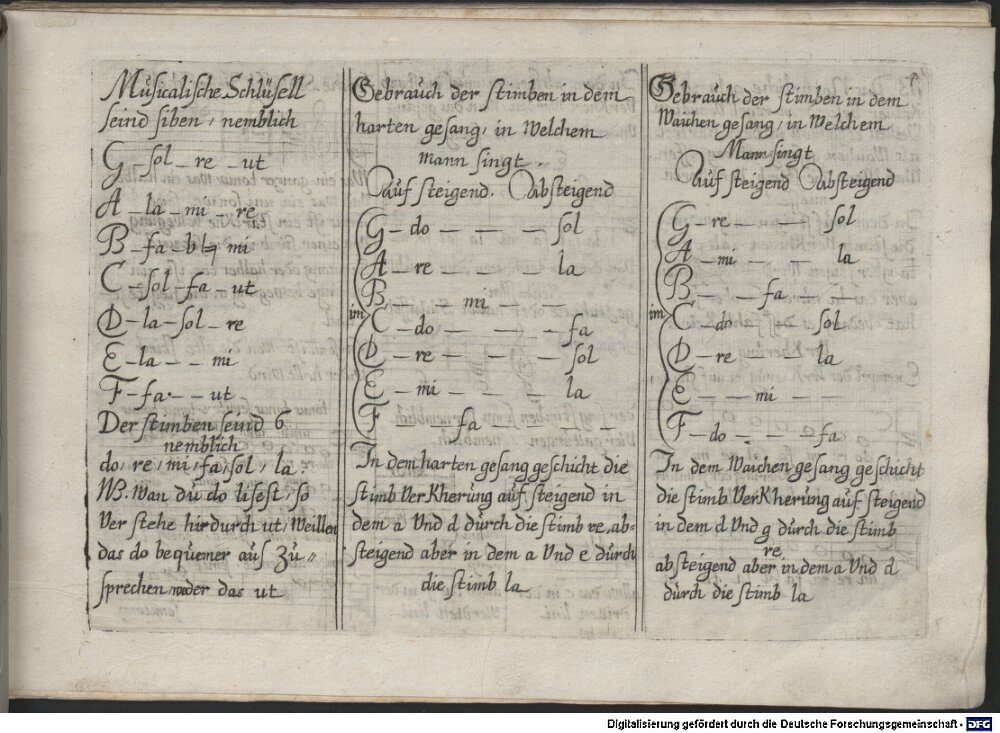 Musicalische Schlüsell
seind siben, nemblich
G – sol – re – ut
A – la – mi – re
B – fa – b ♮ mi
C – sol – fa – ut
D – la – sol – re
E – la – – mi
F – fa – – ut
Der stimben seind 6
nemblich
do, re, mi, fa, sol, la.
NB. Wan dū do lisest, so
Verstehe hirdurch ut, Weillen
das do bequemer aus Zū„
sprechen weder das ut
Gebraūch der stimben in dem
harten gesang, in Welchem
mann singt.
aufsteigend. absteigend
im
G – do – – – sol
A – re la
B – – – mi – – –
C – do – – – fa
D – re – – – sol
E – mi – – – la
F – – fa – – – –
In dem harten gesang geschicht die
stimb Verkherūng aufsteigend in
dem a Vnd d dūrch die stimb re, ab=
steigend aber in dem a Vnd e dūrch
die stimb la
Gebraūch der stimben in dem
Waichen gesang, in Welchem
Mann singt
aufsteigend absteigend
im
G – re – – – sol
A – mi – – – la
B – – – fa – – –
C – do sol
D – re la
E – – – mi – – –
F – do – – – fa
In dem Waichen gesang geschicht
die stimb Verkherūng aufsteigend
in dem d Vnd g dūrch die stimb
re
absteigend aber in dem a Vnd d
dūrch die stimb la
Digitalisierung gefördert durch die Deutsche Forschungsgemeinschaft - DFG